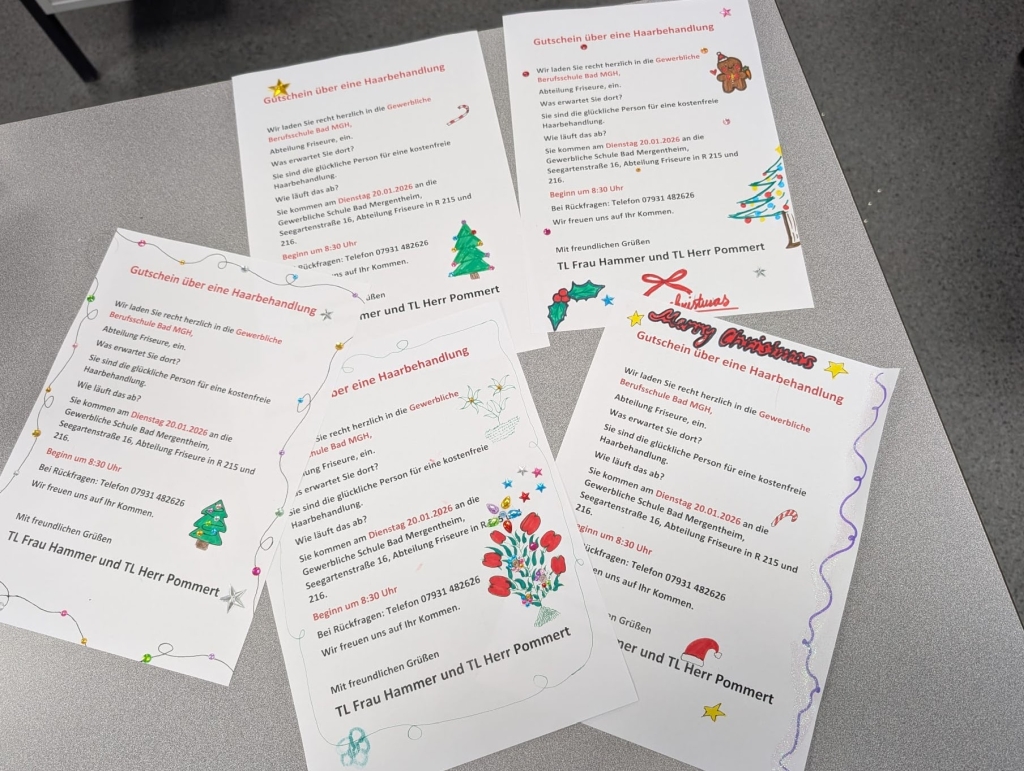 Gutschein über eine Haarbehandlung
Wir laden Sie recht herzlich in die Gewerbliche
Berufsschule Bad MGH,
Abteilung Friseure, ein.
Was erwartet Sie dort?
Sie sind die glückliche Person für eine kostenfreie
Haarbehandlung.
Wie läuft das ab?
Sie kommen am Dienstag 20.01.2026 an die
Gewerbliche Schule Bad Mergentheim,
Seegartenstraße 16, Abteilung Friseure in R 215 und
216.
Beginn um 8:30 Uhr
Rückfragen: Telefon 07931 482626
ns auf Ihr Kommen.
üßen
mer und TL Herr Pommert
Gutschein über eine Haarbehandlung
Wir laden Sie recht herzlich in die Gewerbliche
Berufsschule Bad MGH,
Abteilung Friseure, ein.
Was erwartet Sie dort?
Sie sind die glückliche Person für eine kostenfreie
Haarbehandlung.
Wie läuft das ab?
Sie kommen am Dienstag 20.01.2026 an die
Gewerbliche Schule Bad Mergentheim,
Seegartenstraße 16, Abteilung Friseure in R 215 und
216.
Beginn um 8:30 Uhr
Bei Rückfragen: Telefon 07931 482626
Wir freuen uns auf Ihr Kommen.
Mit freundlichen Grüßen
TL Frau Hammer und TL Herr Pommert
Gutschein über eine Haarbehandlung
Wir laden Sie recht herzlich in die Gewerbliche
Berufsschule Bad MGH,
Abteilung Friseure, ein.
Was erwartet Sie dort?
Sie sind die glückliche Person für eine kostenfreie
Haarbehandlung.
Wie läuft das ab?
Sie kommen am Dienstag 20.01.2026 an die
Gewerbliche Schule Bad Mergentheim,
Seegartenstraße 16, Abteilung Friseure in R 215 und
216.
Beginn um 8:30 Uhr
Bei Rückfragen: Telefon 07931 482626
Wir freuen uns auf Ihr Kommen.
Mit freundlichen Grüßen
TL Frau Hammer und TL Herr Pommert
ber eine Haarbehandlung
Sie recht herzlich in die Gewerbliche
hule Bad MGH,
ung Friseure, ein.
s erwartet Sie dort?
Sie sind die glückliche Person für eine kostenfreie
Haarbehandlung.
Wie läuft das ab?
Sie kommen am Dienstag 20.01.2026 an die
Gewerbliche Schule Bad Mergentheim,
Seegartenstraße 16, Abteilung Friseure in R
216.
Beginn um 8:30 Uhr
Bei Rückfragen: Telefon 07931 482626
Wir freuen uns auf Ihr Kommen.
Mit freundlichen Grüßen
TL Frau Hammer und TL Herr Pommert
Merry Christmas
Gutschein über eine Haarbehandlung
Wir laden Sie recht herzlich in die Gewerbliche
Berufsschule Bad MGH,
Abteilung Friseure, ein.
Was erwartet Sie dort?
Sie sind die glückliche Person für eine kostenfreie
Haarbehandlung.
Wie läuft das ab?
Sie kommen am Dienstag 20.01.2026 an die
Gewerbliche Schule Bad Mergentheim,
Seegartenstraße 16, Abteilung Friseure in R 215 und
216.
ginn um 8:30 Uhr
ückfragen: Telefon 07931 482626
en uns auf Ihr Kommen.
n Grüßen
mer und TL Herr Pommert